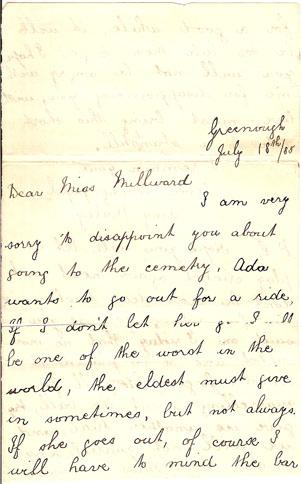 Greenough
July 18th/88
Dear Miss Millward
I am very
sorry to disappoint you about
going to the cemetry, Ada
wants to go out for a ride,
If I don't let her go I'll
be one of the worst in the
world, the eldest must give
in sometimes, but not always.
If she goes out, of course I
will have to mind the bar